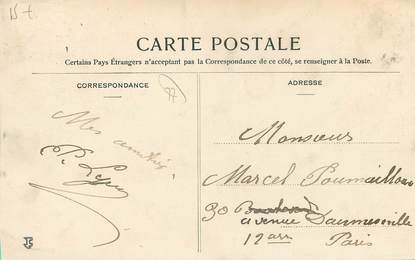 CARTE POSTALE
Certains Pays Étrangers n'acceptant pas la Correspondance de ce côté, se renseigner à la Poste.
CORRESPONDANCE
ADRESSE
Mes amitiés
P.
Monsieur
Marcel Poumailloux
30
avenue Daumesnille
12 arr
Paris